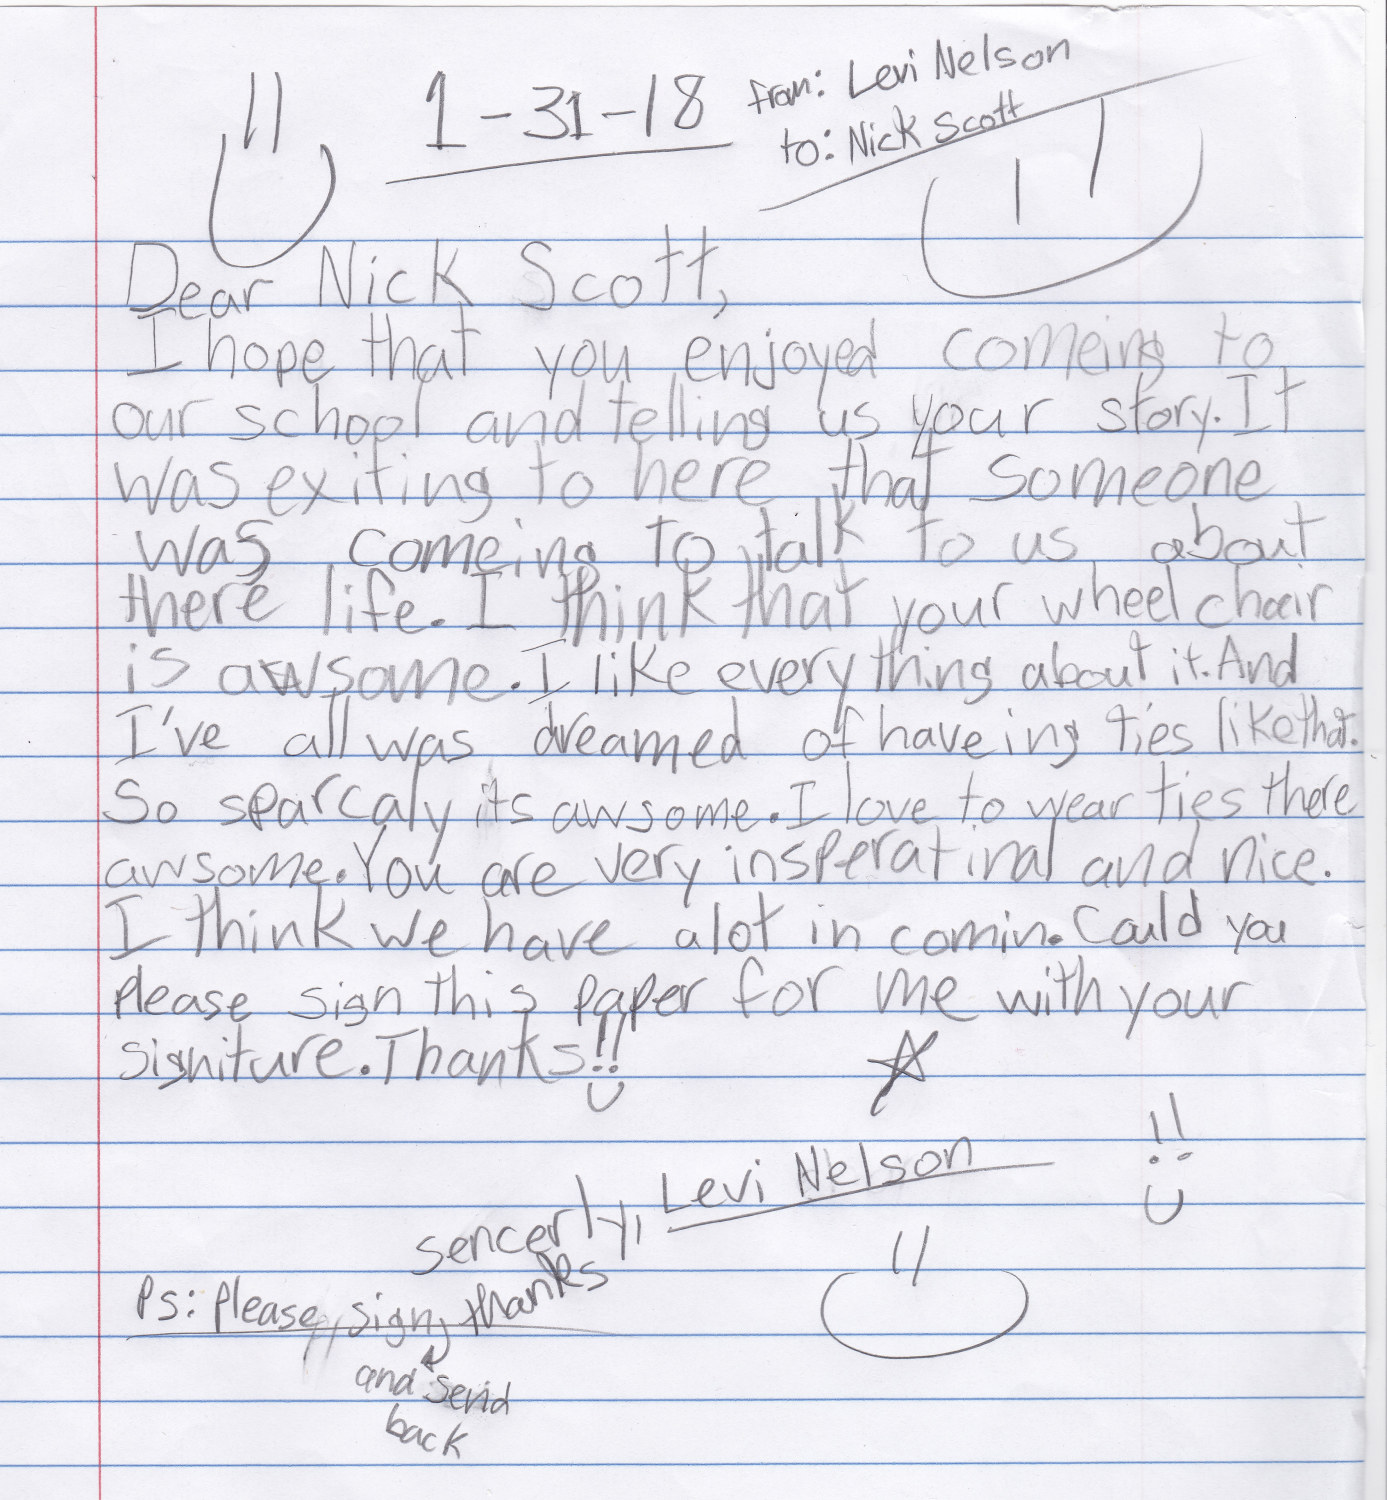 1-31-18
from: Levi Nelson
to: Nick Scott
Dear Nick Scott,
I hope that you enjoyed comeing to
our school and telling us your story. It
was exiting to here that someone
was comeing to talk to us about
there life. I think that your wheel chair
is awsome. I like every thing about it. And
I've all was dreamed of haveing ties like that.
So sparcaly its awsome. I love to wear ties there
awsome. You are very insperatinal and nice.
I think we have alot in comin. Could you
please sign this paper for me with your
signiture. Thanks!!
sencerly, Levi Nelson
Ps: Please, sign, thanks
and send
back